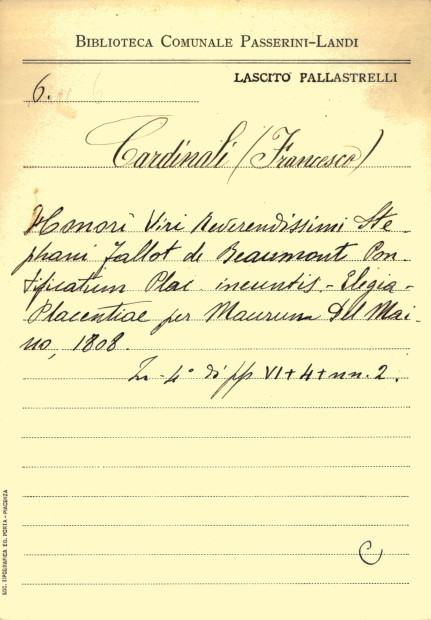 BIBLIOTECA COMUNALE PASSERINI-LANDI
LASCITO PALLASTRELLI
6.
Cardinali (Francesco)
Honori Viri Reverendissimi Ste-
phani Fallot de Beaumont Pon-
tificatum Plac. ineuntis - Elegia -
Placentiae per Maurum Del Mai-
no, 1808.
In - 4° di pp VI + 4 + nn. 2.
C
SOC. TIPOGRAFICA ED. PORTA - PIACENZA